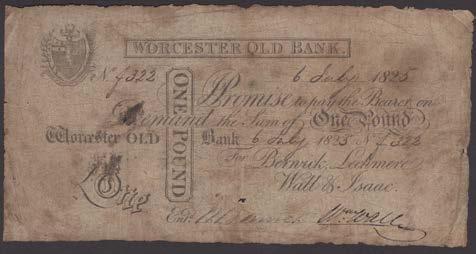 WORCESTER OLD BANK.
No f322 6 July 1825
ONE POUND
Promise to pay the Bearer on
Demand the Sum of One Pound
Worcester OLD Bank 6 July 1825 No f322
For Berwick, Lechmere
Wall & Isaac.
Entd. Wm Wall